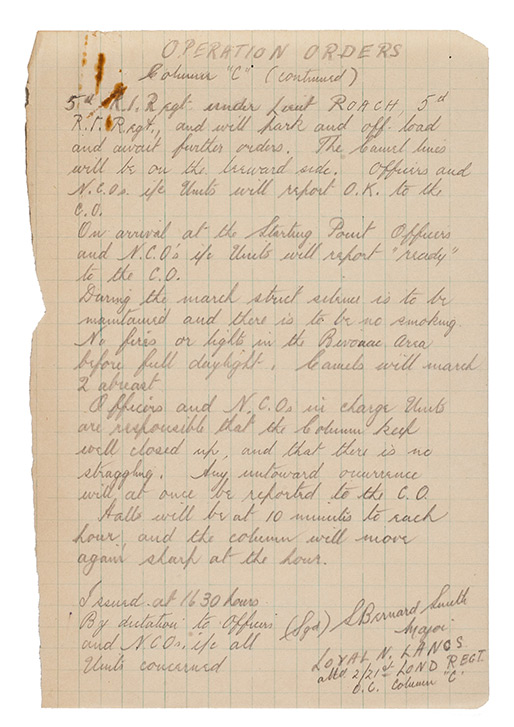 OPERATION ORDERS
Column "C" (continued)
5th R.I. Regt under Lieut ROACH, 5th
R.I. Regt., and will park and off load
and await further orders. The Camel lines
will be on the leeward side. Officers and
N.C.Os. i/c Units will report O.K. to the
C.O.
On arrival at the Starting Point Officers
and N.C.O's i/c Units will report "ready"
to the C.O.
During the march strict silence is to be
maintained and there is to be no smoking.
No fires or lights in the Bivouac Area
before full daylight. Camels will march
2 abreast
Officers and N.C.Os in charge Units
are responsible that the Column keep
well closed up, and that there is no
straggling. Any untoward ocurrence
will at once be reported to the C.O.
Halts will be at 10 minutes to each
hour, and the column will move
again sharp at the hour.
Issued at 1630 hours
By dictation to Officers
and N.C.Os. i/c all
Units concerned
(Sgd) S Bernard Smith
Major
LOYAL N. LANCS.
attd 2/21st LOND REGT.
O.C. Column "C".